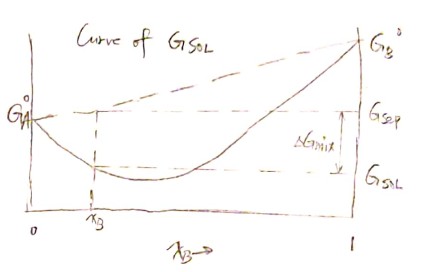 Curve of GSOL
GB°
G°A
Gsep
ΔGmix
GSOL
xB
0
XB→
1